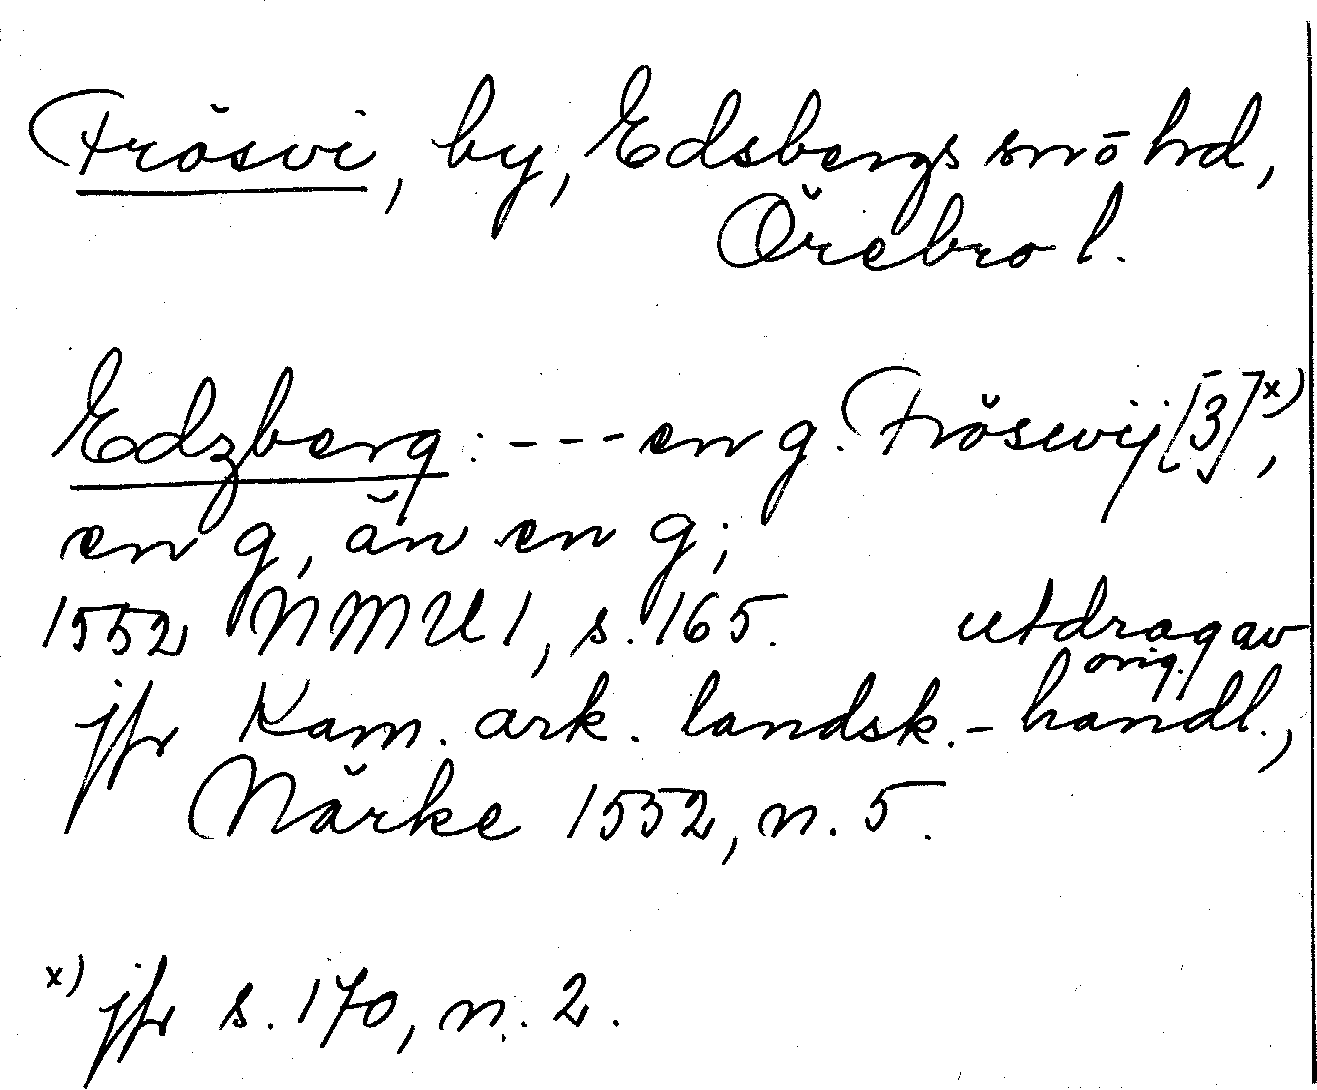 Frösvi, by, Edsbergs sn o hd,
Örebro l.
Edzberg: --- en g. Frösewij [3]x),
en g, än en g;
1552 NMU 1, s. 165. utdrag av
orig.
jfr Kam. ark. landsk.-handl.,
Närke 1552, n. 5.
x) jfr s. 170, n. 2.